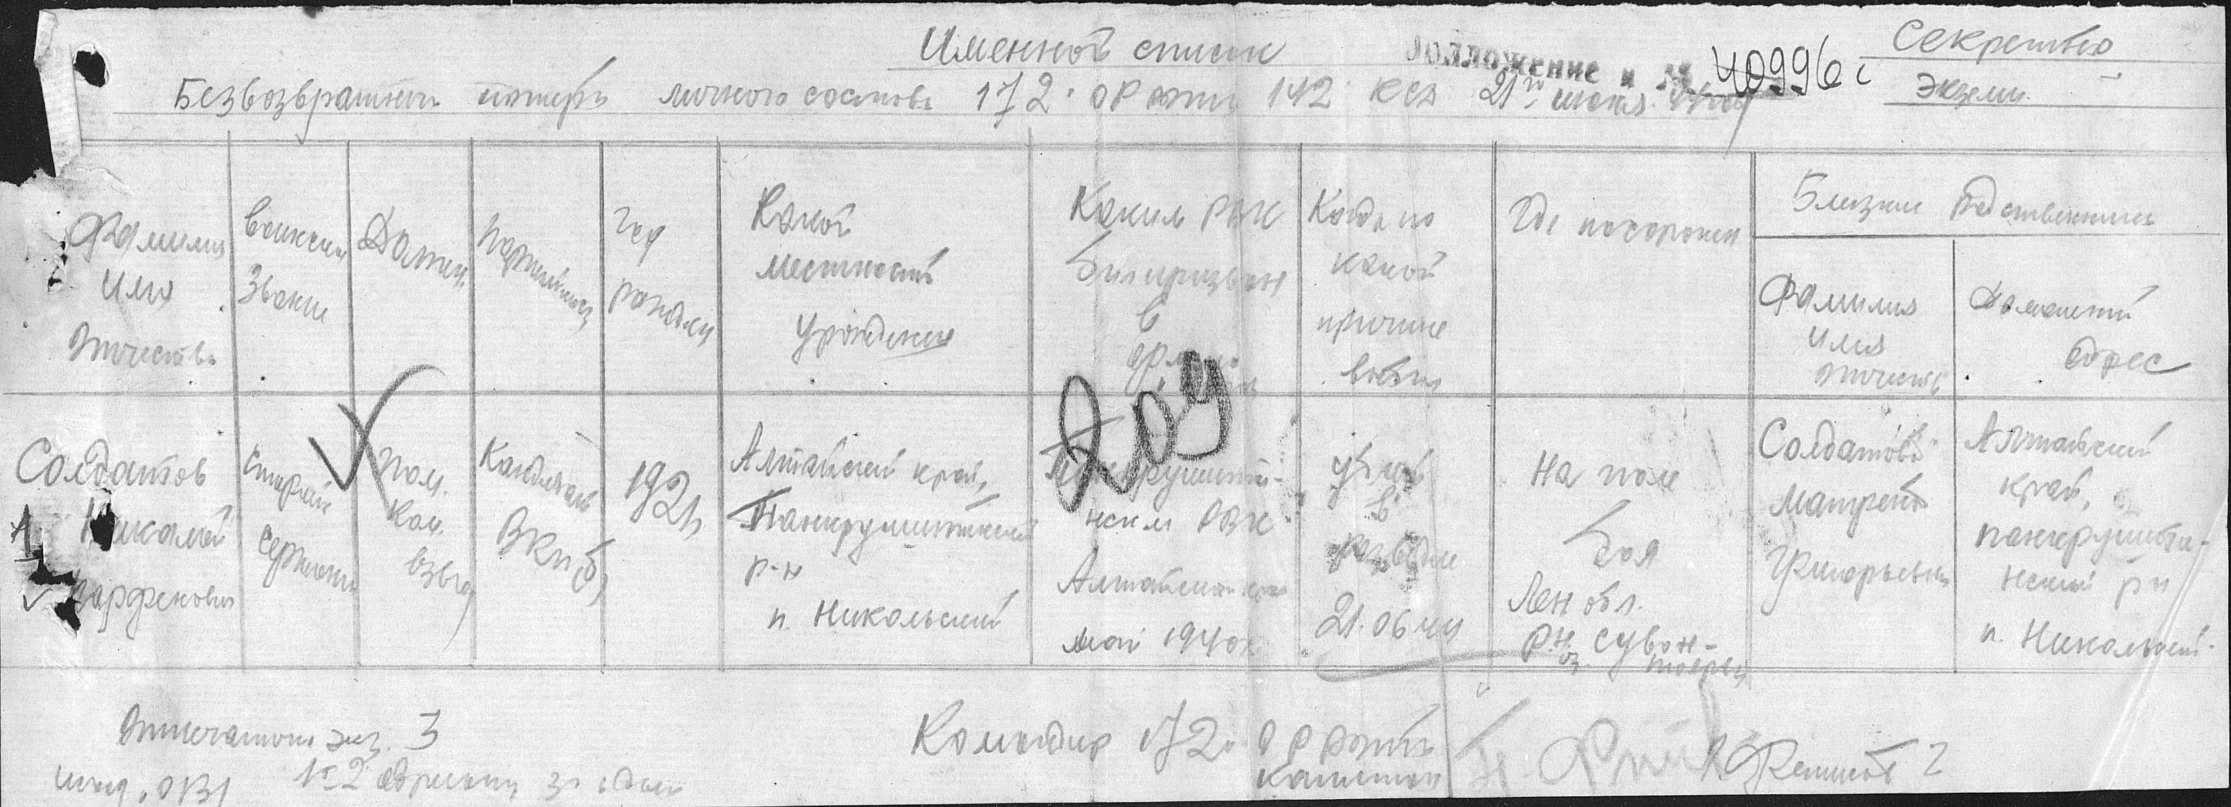 Именной список
Секретно
Приложение к 40996 с
Экземп.
Безвозвратных потерь личного состава 172 ОР роты 142 КСД 21го июня
Фамилия
Имя
Отчество
Воинское
Звание
Должн.
Партийность
год
рожден
Какой
местности
уроженец
Каким РВК
Был призван
в
армию
Когда по
какой
причине
выбыл
Где похоронен
Близкие Родственники
Фамилия
Имя
Отчеств
Домашний
адрес
Солдатов
Николай
Парфенович
Старший
сержант
Пом.
Ком.
взвод
Кандидат
ВКП(б)
1921
Алтайский край,
Панкрушихинский
р-н
п. Никольский
209
нским РВК
Алтайского края
май 1940
убит
в
разведке
21.06.44
На поле
боя
Лен обл.
р-н
Солдатова
Матрена
Григорьевна
Алтайский
край,
панкрушихи-
нский р-н
п. Никольский.
Отпечатано экз. 3
Командир 172 ОР роты
1-2 адресату 3
капитан